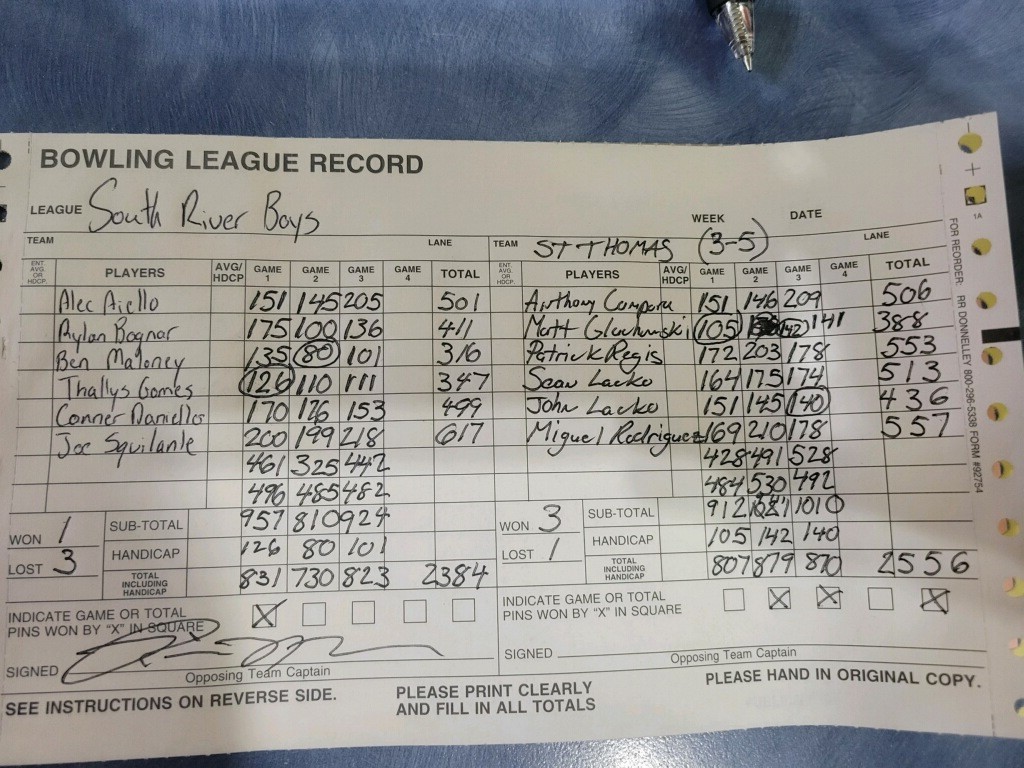 BOWLING LEAGUE RECORD
LEAGUE South River Boys
WEEK DATE
TEAM LANE TEAM ST THOMAS (3-5) LANE
ENT. AVG. OR HDCP. PLAYERS AVG/HDCP GAME 1 GAME 2 GAME 3 GAME 4 TOTAL ENT. AVG. OR HDCP. PLAYERS AVG/HDCP GAME 1 GAME 2 GAME 3 GAME 4 TOTAL
Alec Aiello 151 145 205 501 Anthony 151 146 209 506
Rylan Bognar 175 100 136 411 Matt 105 142 141 388
Ben Maloney 135 80 101 316 Patrick Regis 172 203 178 553
Thallys Gomes 126 110 111 347 Sean Lacko 164 175 174 513
Conner 170 176 153 499 John Lacko 151 145 140 436
Joe Squilante 200 199 218 617 Miguel Rodriguez 169 210 178 557
461 325 442 428 491 528
496 485 482 484 530 492
WON 1 SUB-TOTAL 957 810 924 WON 3 SUB-TOTAL 912 1021 1010
LOST 3 HANDICAP 126 80 101 LOST 1 HANDICAP 105 142 140
TOTAL INCLUDING HANDICAP 831 730 823 2384 TOTAL INCLUDING HANDICAP 807 879 870 2556
INDICATE GAME OR TOTAL PINS WON BY "X" IN SQUARE X INDICATE GAME OR TOTAL PINS WON BY "X" IN SQUARE X X X
SIGNED SIGNED
Opposing Team Captain Opposing Team Captain
SEE INSTRUCTIONS ON REVERSE SIDE. PLEASE PRINT CLEARLY AND FILL IN ALL TOTALS PLEASE HAND IN ORIGINAL COPY.
1A
FOR REORDER: RR DONNELLEY 800-296-5338 FORM #92754